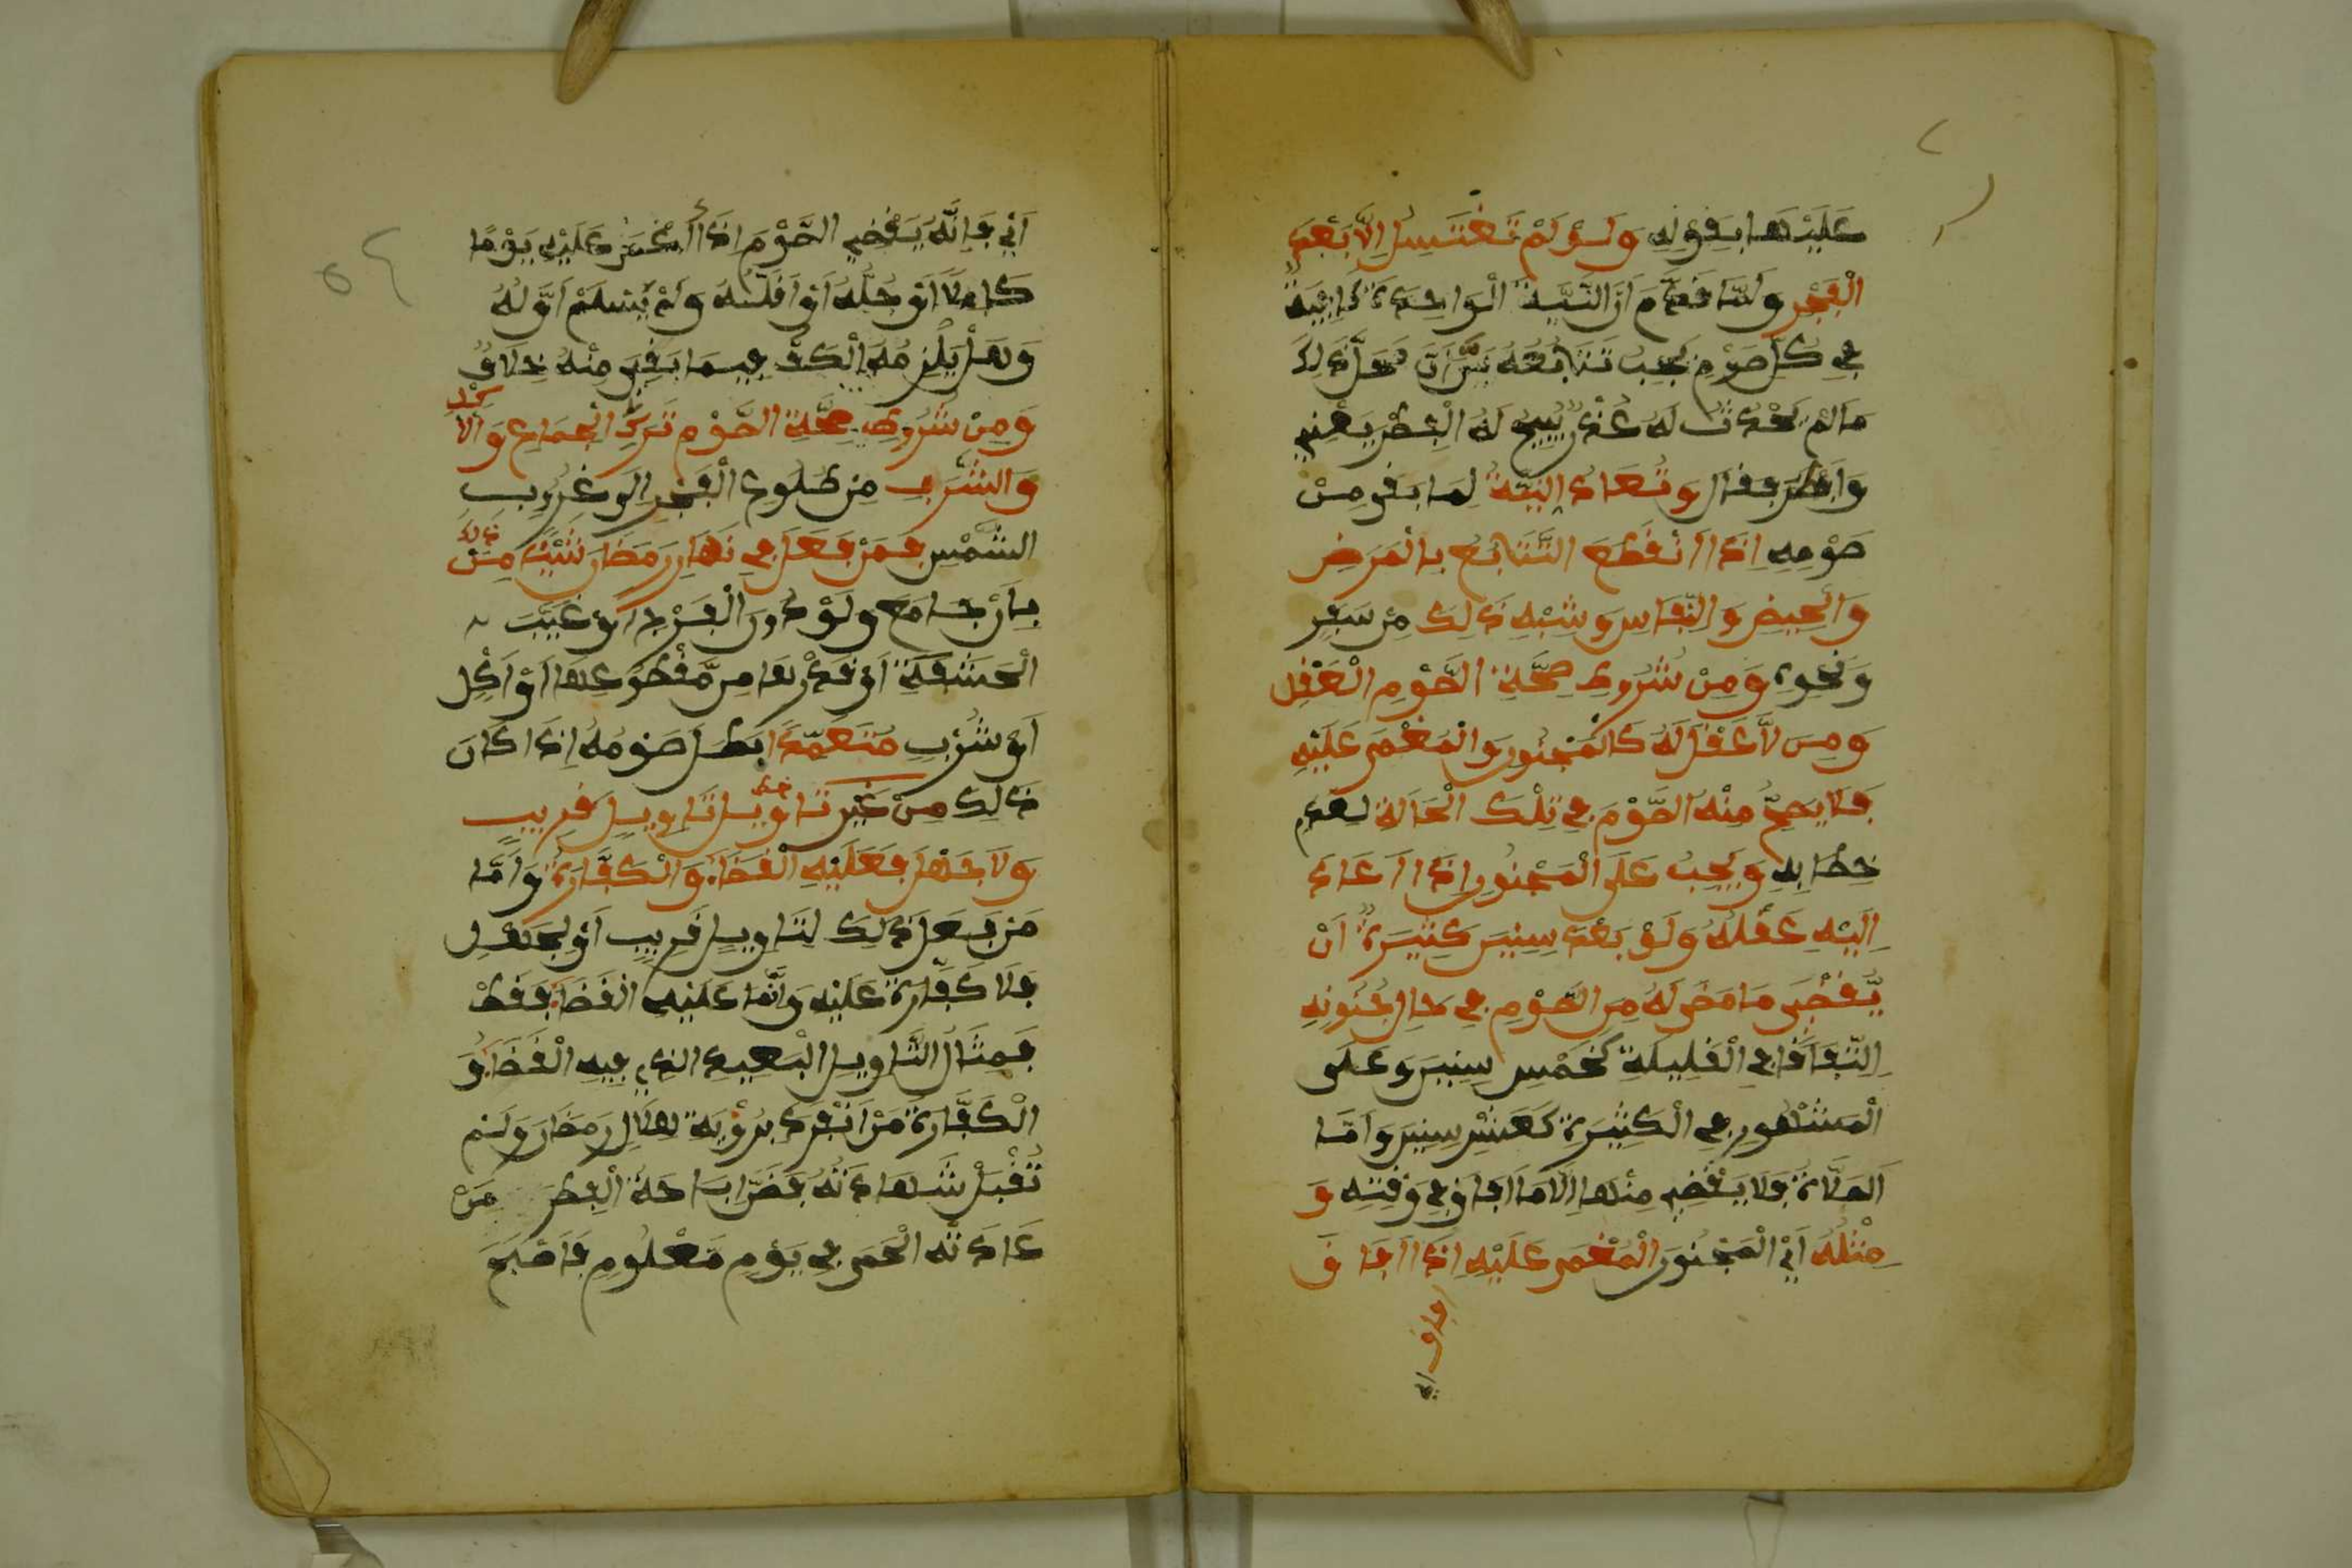 عَلَيْهَا بِقَوْلِهِ وَلَوْ لَمْ تَغْتَسِلْ اِلَّا بَعْدَ
الْفَجْرِ وَلَمَّا قَدَّمَ اَنَّ النِّيَّةَ الْوَاحِدَةَ كَافِيَةٌ
فِي كُلِّ صَوْمٍ يَجِبُ تَتَابُعُهُ بَيَّنَ اَنَّ مَحَلَّ ذَلِكَ
مَا لَمْ يَحْدُثْ لَهُ عُذْرٌ يُبِيحُ لَهُ الْفِطْرَ يَعْنِي
وَاَفْطَرَ فَقَالَ وَتُعَادُ النِّيَّةُ لِمَا بَقِيَ مِنْ
صَوْمِهِ اِذَا اَنْقَطَعَ التَّتَابُعُ بِالْمَرَضِ
وَالْحَيْضِ وَالنِّفَاسِ وَشِبْهِ ذَلِكَ مِنْ سَفَرٍ
وَنَحْوِهِ وَمِنْ شُرُوطِ صِحَّةِ الصَّوْمِ الْعَقْلُ
وَمَنْ لَّا عَقْلَ لَهُ كَالْمَجْنُونِ وَالْمُغْمَى عَلَيْهِ
فَلَا يَصِحُّ مِنْهُ الصَّوْمُ فِي تِلْكَ الْحَالَةِ لِعَدَمِ
خِطَابِهِ وَيَجِبُ عَلَى الْمَجْنُونِ اِذَا اَعَادَ
اِلَيْهِ عَقْلُهُ وَلَوْ بَعْدَ سِنِينَ كَثِيرَةٍ اَنْ
يَّقْضِيَ مَا مَضَى لَهُ مِنَ الصَّوْمِ فِي حَالِ جُنُونِهِ
اِتِّفَاقًا فِي الْقَلِيلَةِ كَخَمْسِ سِنِينَ وَعَلَى
الْمَشْهُورِ فِي الْكَثِيرَةِ كَعَشْرِ سِنِينَ وَاَمَّا
الصَّلَاةُ فَلَا يَقْضِي مِنْهَا اِلَّا مَا اَفَاقَ فِي وَقْتِهِ وَ
مِثْلُهُ اَيْ الْمَجْنُونِ الْمُغْمَى عَلَيْهِ اِذَا اَفَاقَ
اَيْ فَاِنَّهُ يَقْضِي الصَّوْمَ اِذَا اُغْمِيَ عَلَيْهِ يَوْمًا
كَامِلًا اَوْ جُلَّهُ اَوْ اَقَلَّهُ وَلَمْ يَسْلَمْ اَوَّلُهُ
وَهَلْ يَلْزَمُهُ الْكَفُّ فِيمَا بَقِيَ مِنْهُ خِلَافٌ
وَمِنْ شُرُوطِ صِحَّةِ الصَّوْمِ تَرْكُ الْجِمَاعِ وَالْاَكْلِ
وَالشُّرْبِ مِنْ طُلُوعِ الْفَجْرِ اِلَى غُرُوبِ
الشَّمْسِ فَمَنْ فَعَلَ فِي نَهَارِ رَمَضَانَ شَيْئًا مِنْ ذَلِكَ
بِاَنْ جَامَعَ وَلَوْ دُونَ الْفَرْجِ اَوْ غَيَّبَ
الْحَشَفَةَ اَوْ قَدْرَهَا مِنْ مَّقْطُوعِهَا اَوْ اَكَلَ
اَوْ شَرِبَ مُتَعَمِّدًا بَطَلَ صَوْمُهُ اِذَا كَانَ
ذَلِكَ مِنْ غَيْرِ تَاوِيلٍ تَاوِيلٍ قَرِيبٍ
وَلَا جَهْلٍ فَعَلَيْهِ الْقَضَاءُ وَالْكَفَّارَةُ وَاَمَّا
مَنْ فَعَلَ ذَلِكَ لِتَاوِيلٍ قَرِيبٍ اَوْ لِجَهْلٍ
فَلَا كَفَّارَةَ عَلَيْهِ وَاِنَّمَا عَلَيْهِ الْقَضَاءُ فَقَطْ
فَمِثَالُ التَّاوِيلِ الْبَعِيدِ الَّذِي فِيهِ الْقَضَاءُ وَ
الْكَفَّارَةُ مَنْ اَنْفَرَدَ بِرُؤْيَةِ هِلَالِ رَمَضَانَ وَلَمْ
تُقْبَلْ شَهَادَتُهُ فَظَنَّ اِبَاحَةَ الْفِطْرِ مَنْ
عَادَتُهُ الْحُمَّى فِي يَوْمٍ مَعْلُومٍ فَاَصْبَحَ